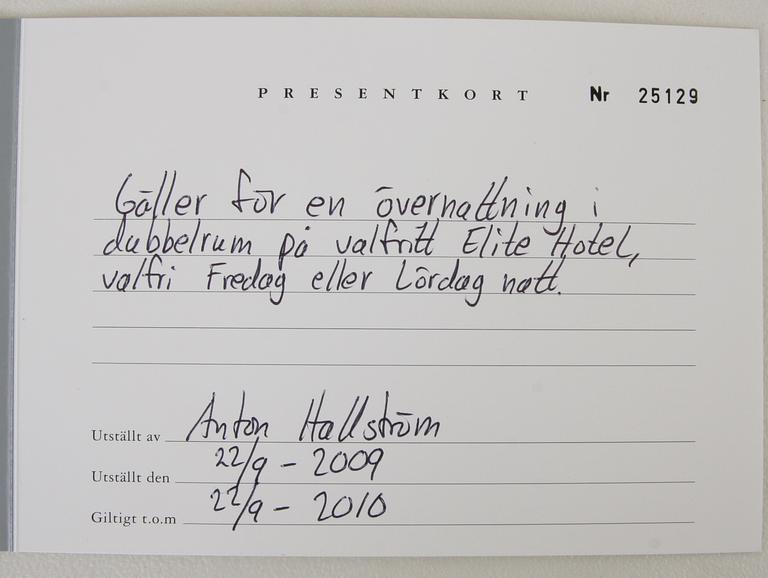 PRESENTKORT Nr 25129
Gäller för en övernattning i
dubbelrum på valfritt Elite Hotel,
valfri Fredag eller Lördag natt.
Utställt av Anton Hallström
Utställt den 22/9 - 2009
Giltigt t.o.m 22/9 - 2010